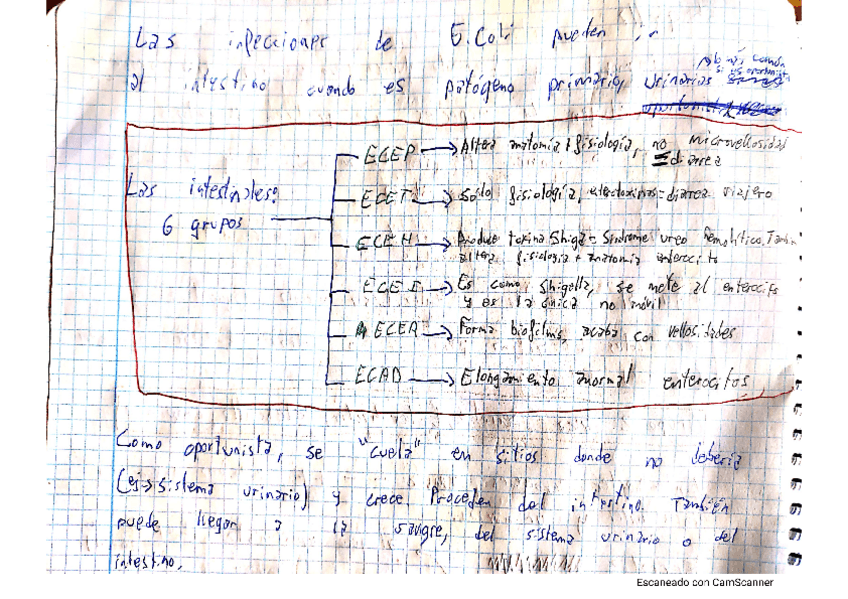 Las infecciones de E.Coli pueden ir
al intestino cuando es patógeno primario, urinarias
más común
si es oportunista
Las intestinales:
6 grupos
ECEP → Altera anatomía + fisiología, no microvellosidad
= diarrea
ECET → Sólo fisiología, enterotoxinas = diarrea viajero
ECEH → Produce toxina Shiga = Síndrome ureo hemolítico. También
altera fisiología + anatomía enterocito
ECEI → Es como Shigella, se mete al enterocito
y es la única no móvil
ECEA → Forma biofilms, acaba con vellosidades
ECAD → Elongamiento anormal enterocitos
Como oportunista, se "cuela" en sitios donde no debería
(ej→sistema urinario) y crece. Proceden del intestino. También
puede llegar a la sangre, del sistema urinario o del
intestino.
Escaneado con CamScanner